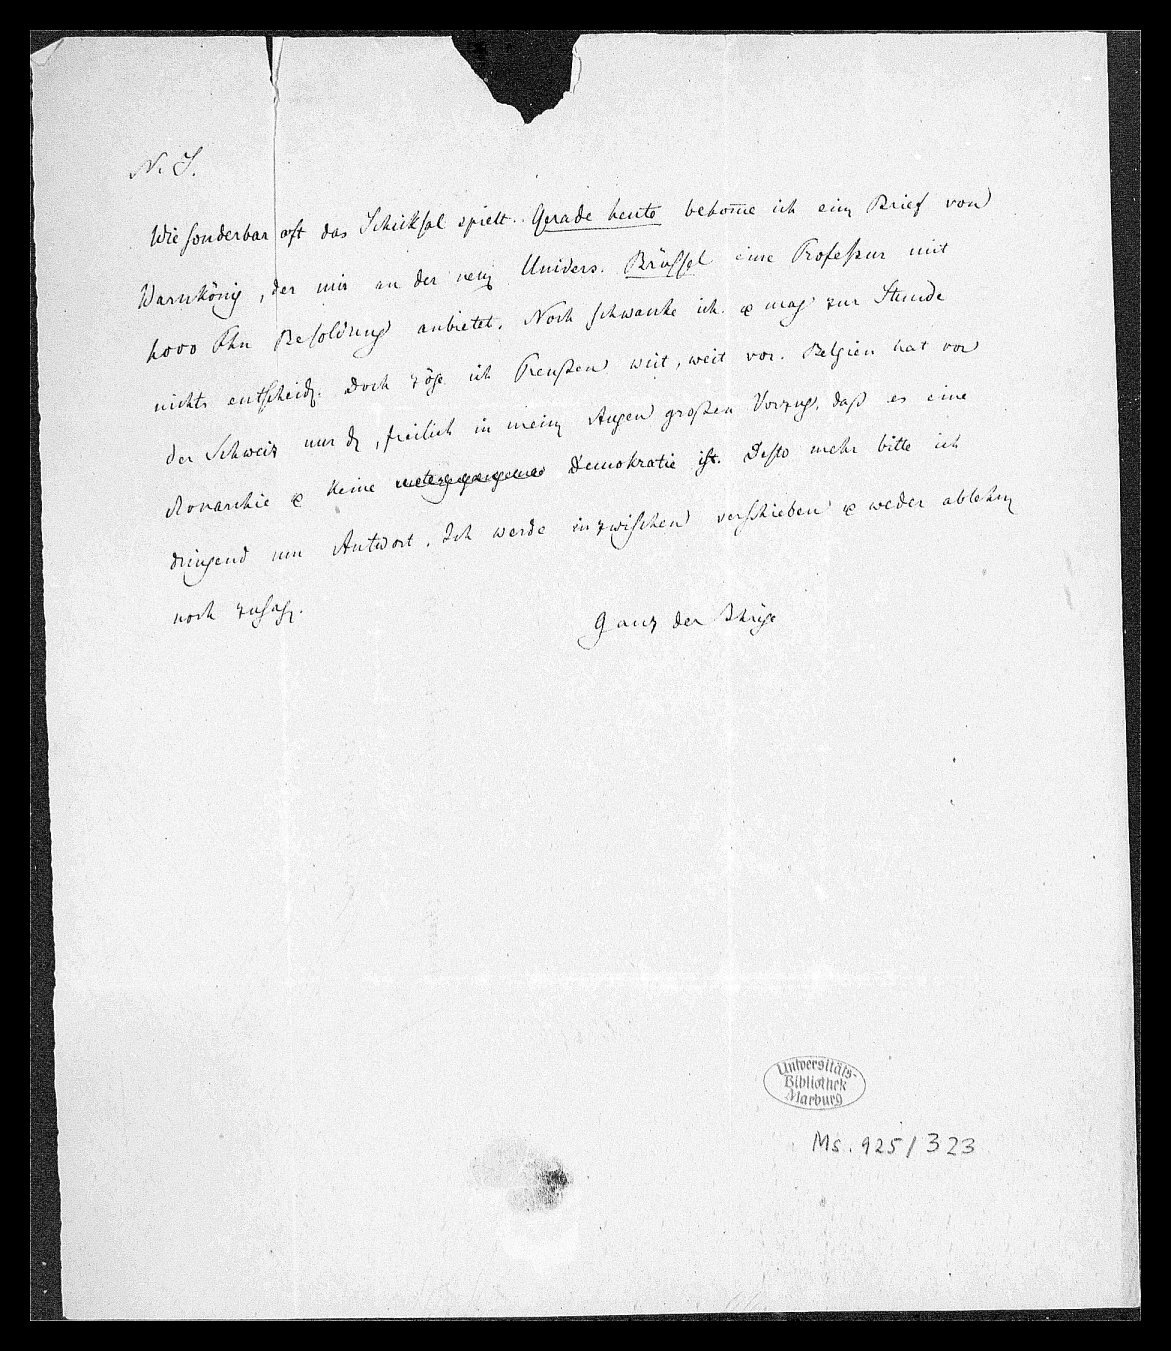 N. S.
Wie sonderbar oft das Schicksal spielt. Gerade heute bekom̅e ich ein Brief von
Warnkönig, der mir an der neuen Univers. Brüssel eine Professur mit
Besoldung anbietet. Noch schwanke ich & mag zur Stunde
nichts entscheiden. Doch zöge ich Preußen weit, weit vor. Belgien hat vor
der Schweiz nur den, freilich in meinen Augen großen Vorzug, daß es eine
Monarchie & keine Demokratie ist. Desto mehr bitte ich
dringend um Antwort. Ich werde inzwischen verschieben & weder ablehnen
noch zusagen.
Ganz der Ihrige
Universitäts-
Bibliothek
Marburg
Ms. 925/323